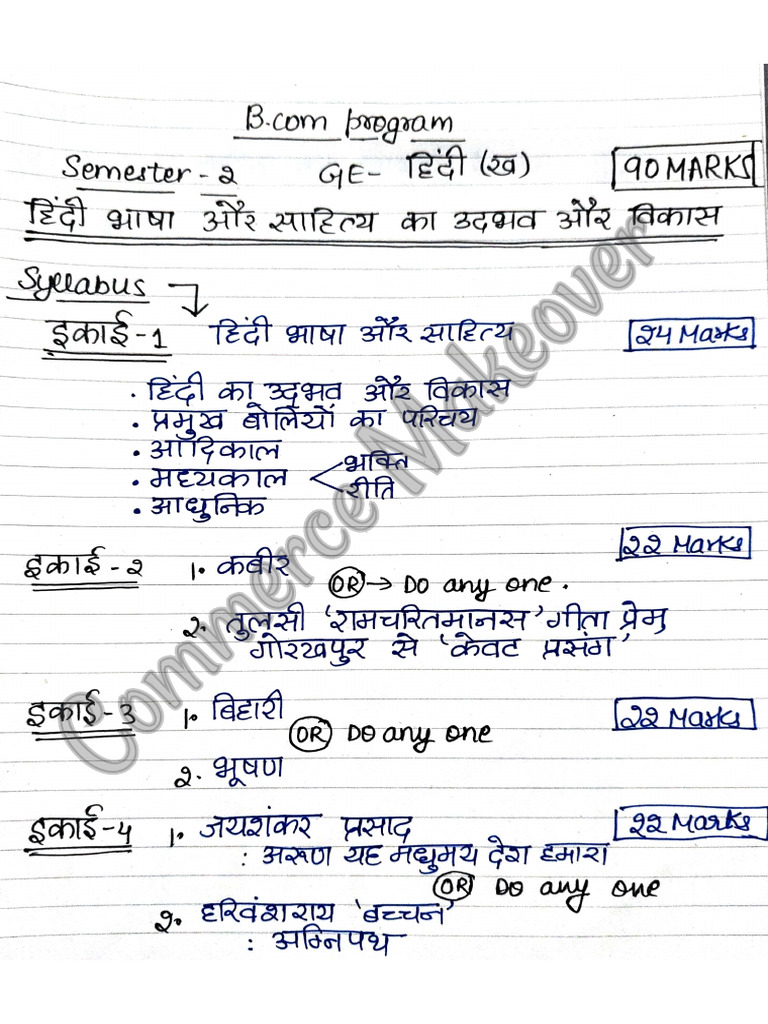 B.com program
Semester - 2 GE- हिंदी (ख) 90 MARKS
हिंदी भाषा और साहित्य का उदभव और विकास
Syllabus
इकाई-1 हिंदी भाषा और साहित्य 24 Marks
• हिंदी का उदभव और विकास
• प्रमुख बोलियों का परिचय
• आदिकाल
• मध्यकाल < भक्ति
रीति
• आधुनिक
22 Marks
इकाई-2 1. कबीर
OR → Do any one.
2. तुलसी 'रामचरितमानस' गीता प्रेस
गोरखपुर से 'केवट प्रसंग'
इकाई-3 1. बिहारी 22 Marks
OR DO any one
2. भूषण
इकाई-4 1. जयशंकर प्रसाद 22 Marks
: अरूण यह मधुमय देश हमारा
OR DO any one
2. हरिवंशराय 'बच्चन'
: अग्निपथ
Commerce Makeover